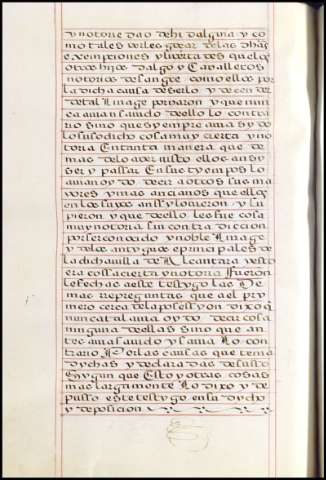 y notoriedad de hidalguia y co
mo tales deles gozar de las dhas
exempciones y livertades que los
otros hijos dalgo y Cavalleros
notorios de sangre como ellos por
la dicha causa de serlo y decender
de tal linage gozaron y que nun
ca avian savido de ello lo contra
rio sino que siempre avia sydo
lo susodicho cosa muy cierta y no
toria Entanta manera que de
mas de lo aver visto ellos ansy
ser y passar En sus tyempos lo
avian oydo decir a otros sus ma
yores y mas ancianos que ellos
en los suyos anssy lo vieron y su
pieron y que de ello les fue cosa
muy notoria sin contra diccion
por ser conocido y noble linage
y de los antyguos e principales de
la dicha villa de Alcantara y esto
era cossa cierta y notoria Fueron
le fechas a este testygo las De
mas repreguntas que a el pry
mero cerca de la posessyon dixo q
nunca tal avia oydo decir cosa
ninguna de ellas sino que an
tes avia savido y savia lo con
trario Por las causas que tenia
dychas y declaradas de susso
Sygun que Esto y otras cosas
mas largamente lo dixo y de
pusso este testygo en su dycho
y deposicion